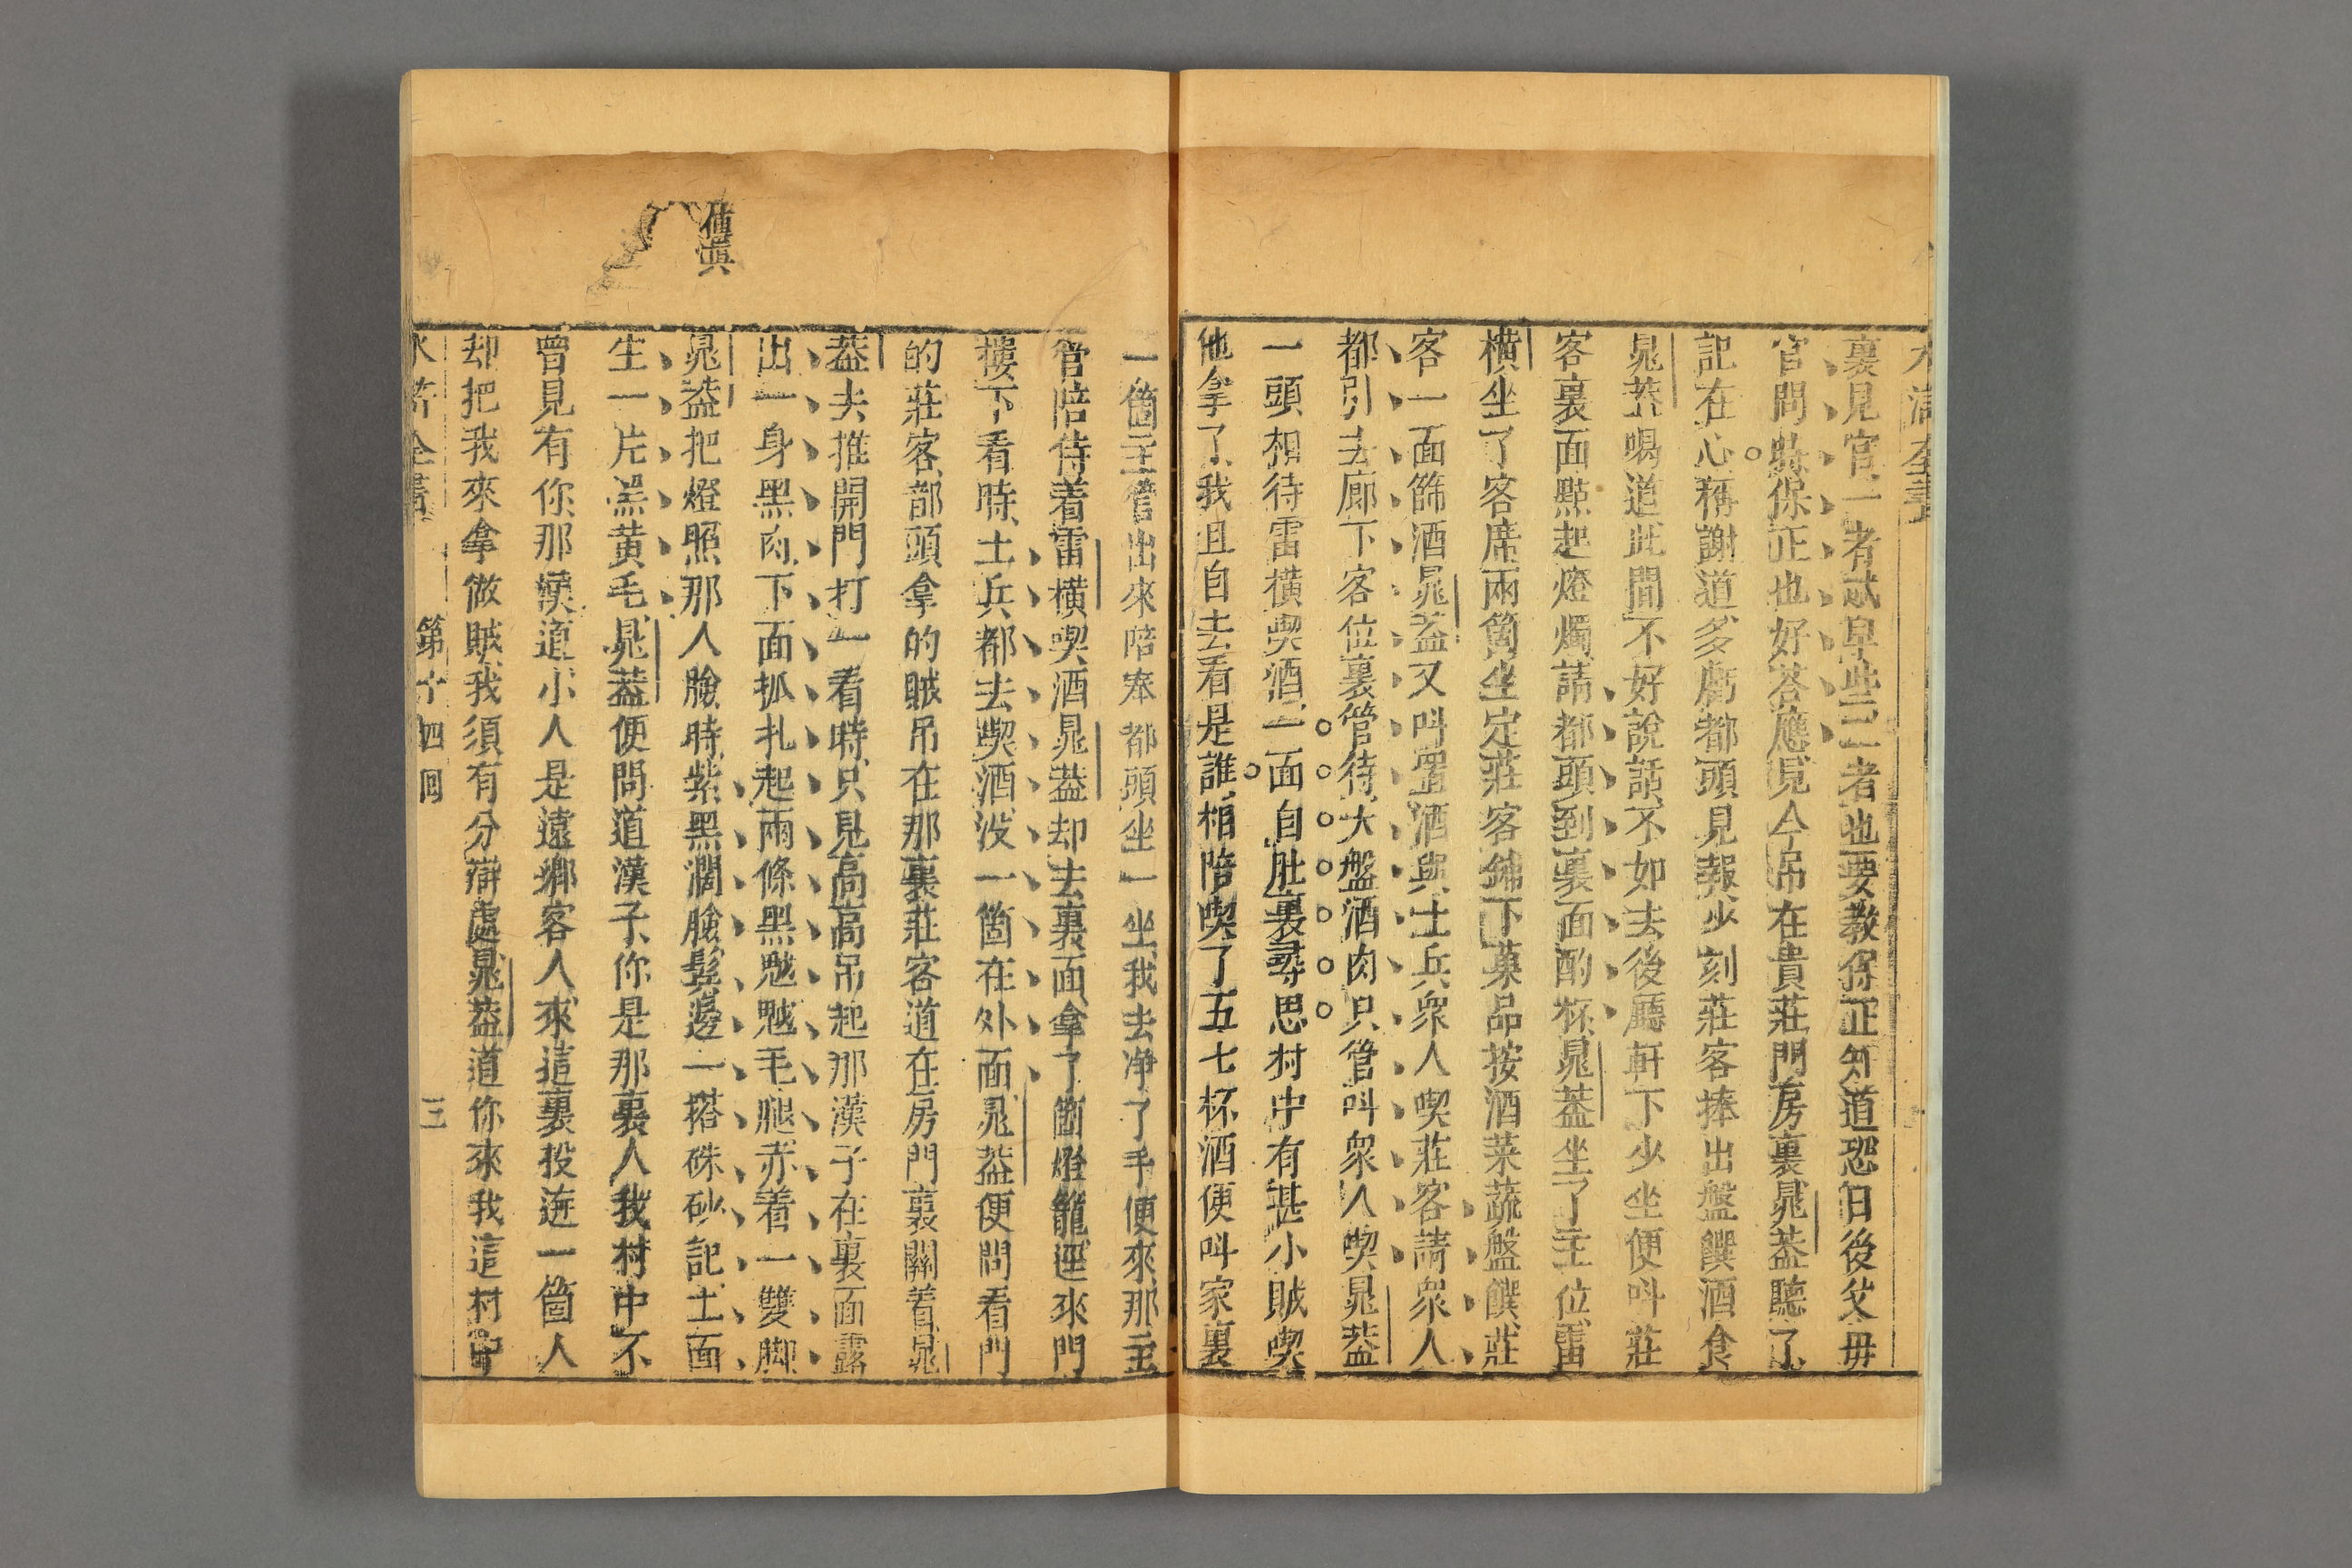 水滸全書
裏見官一者忒早些二者也要教保正知道恐日後父毋
官問時保正也好荅應見今吊在貴莊門房裏晁葢聽了
記在心稱謝道多虧都頭見報少刻莊客捧出盤饌酒食
晁葢喝道此間不好說話不如去後廳軒下少坐便呌莊
客裏面㸃起燈燭請都頭到裏面酌杯晁葢坐了主位雷
横坐了客席兩箇坐定莊客鋪下菓品按酒菜蔬盤饌莊
客一面篩酒晁葢又呌置酒與土兵衆人喫莊客請衆人
都引去廊下客位裏管待大盤酒肉只管呌衆人喫晁葢
一頭相待雷横喫酒一面自肚裏尋思村中有甚小賊喫
他拿了我且自去看是誰相陪喫了五七杯酒便呌家裏
一箇主管出來陪奉都頭坐一坐我去净了手便來那主
管陪侍着雷横喫酒晁葢却去裏面拿了箇燈籠逕來門
樓下看時土兵都去喫酒没一箇在外面晁葢便問看門
的莊客都頭拿的賊吊在那裏莊客道在房門裏關着晁
葢去推開門打一看時只見高高吊起那漢子在裏面露
出一身黑肉下面抓扎起兩條黑魆魆毛腿赤着一雙脚
晁葢把燈照那人臉時紫黑濶臉鬂邊一搭硃砂記上面
生一片黑黄毛晁葢便問道漢子你是那裏人我村中不
曾見有你那漢道小人是遠鄉客人來這裏投逩一箇人
却把我來拿做賊我須有分辯處晁葢道你來我這村中
傳眞
水滸全書 第十四回 三